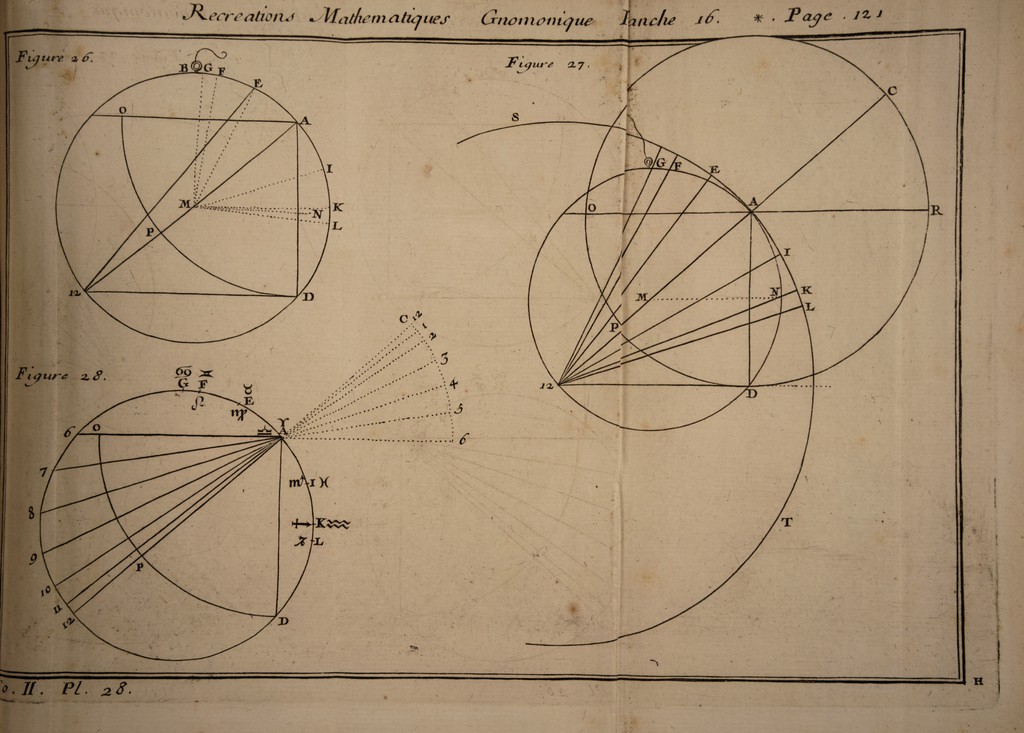 Recreations Mathematiques Gnomonique lanche 16. *. Page. 121
Figure 26.
B G F
E
O
A
I
M
K
N
L
P
12
D
Figure 27.
S
C
G F
E
O
A
R
I
M
N
K
L
P
12
D
T
Figure 28.
♋ ♊
G F
♌
♉
E
♍
6
O
♎
♈
A
7
8
9
10
11
12
P
D
♏ I ♓
♐ K ♒
♑ L
C 12
1
2
3
4
5
6
o. II. Pl. 28.
H